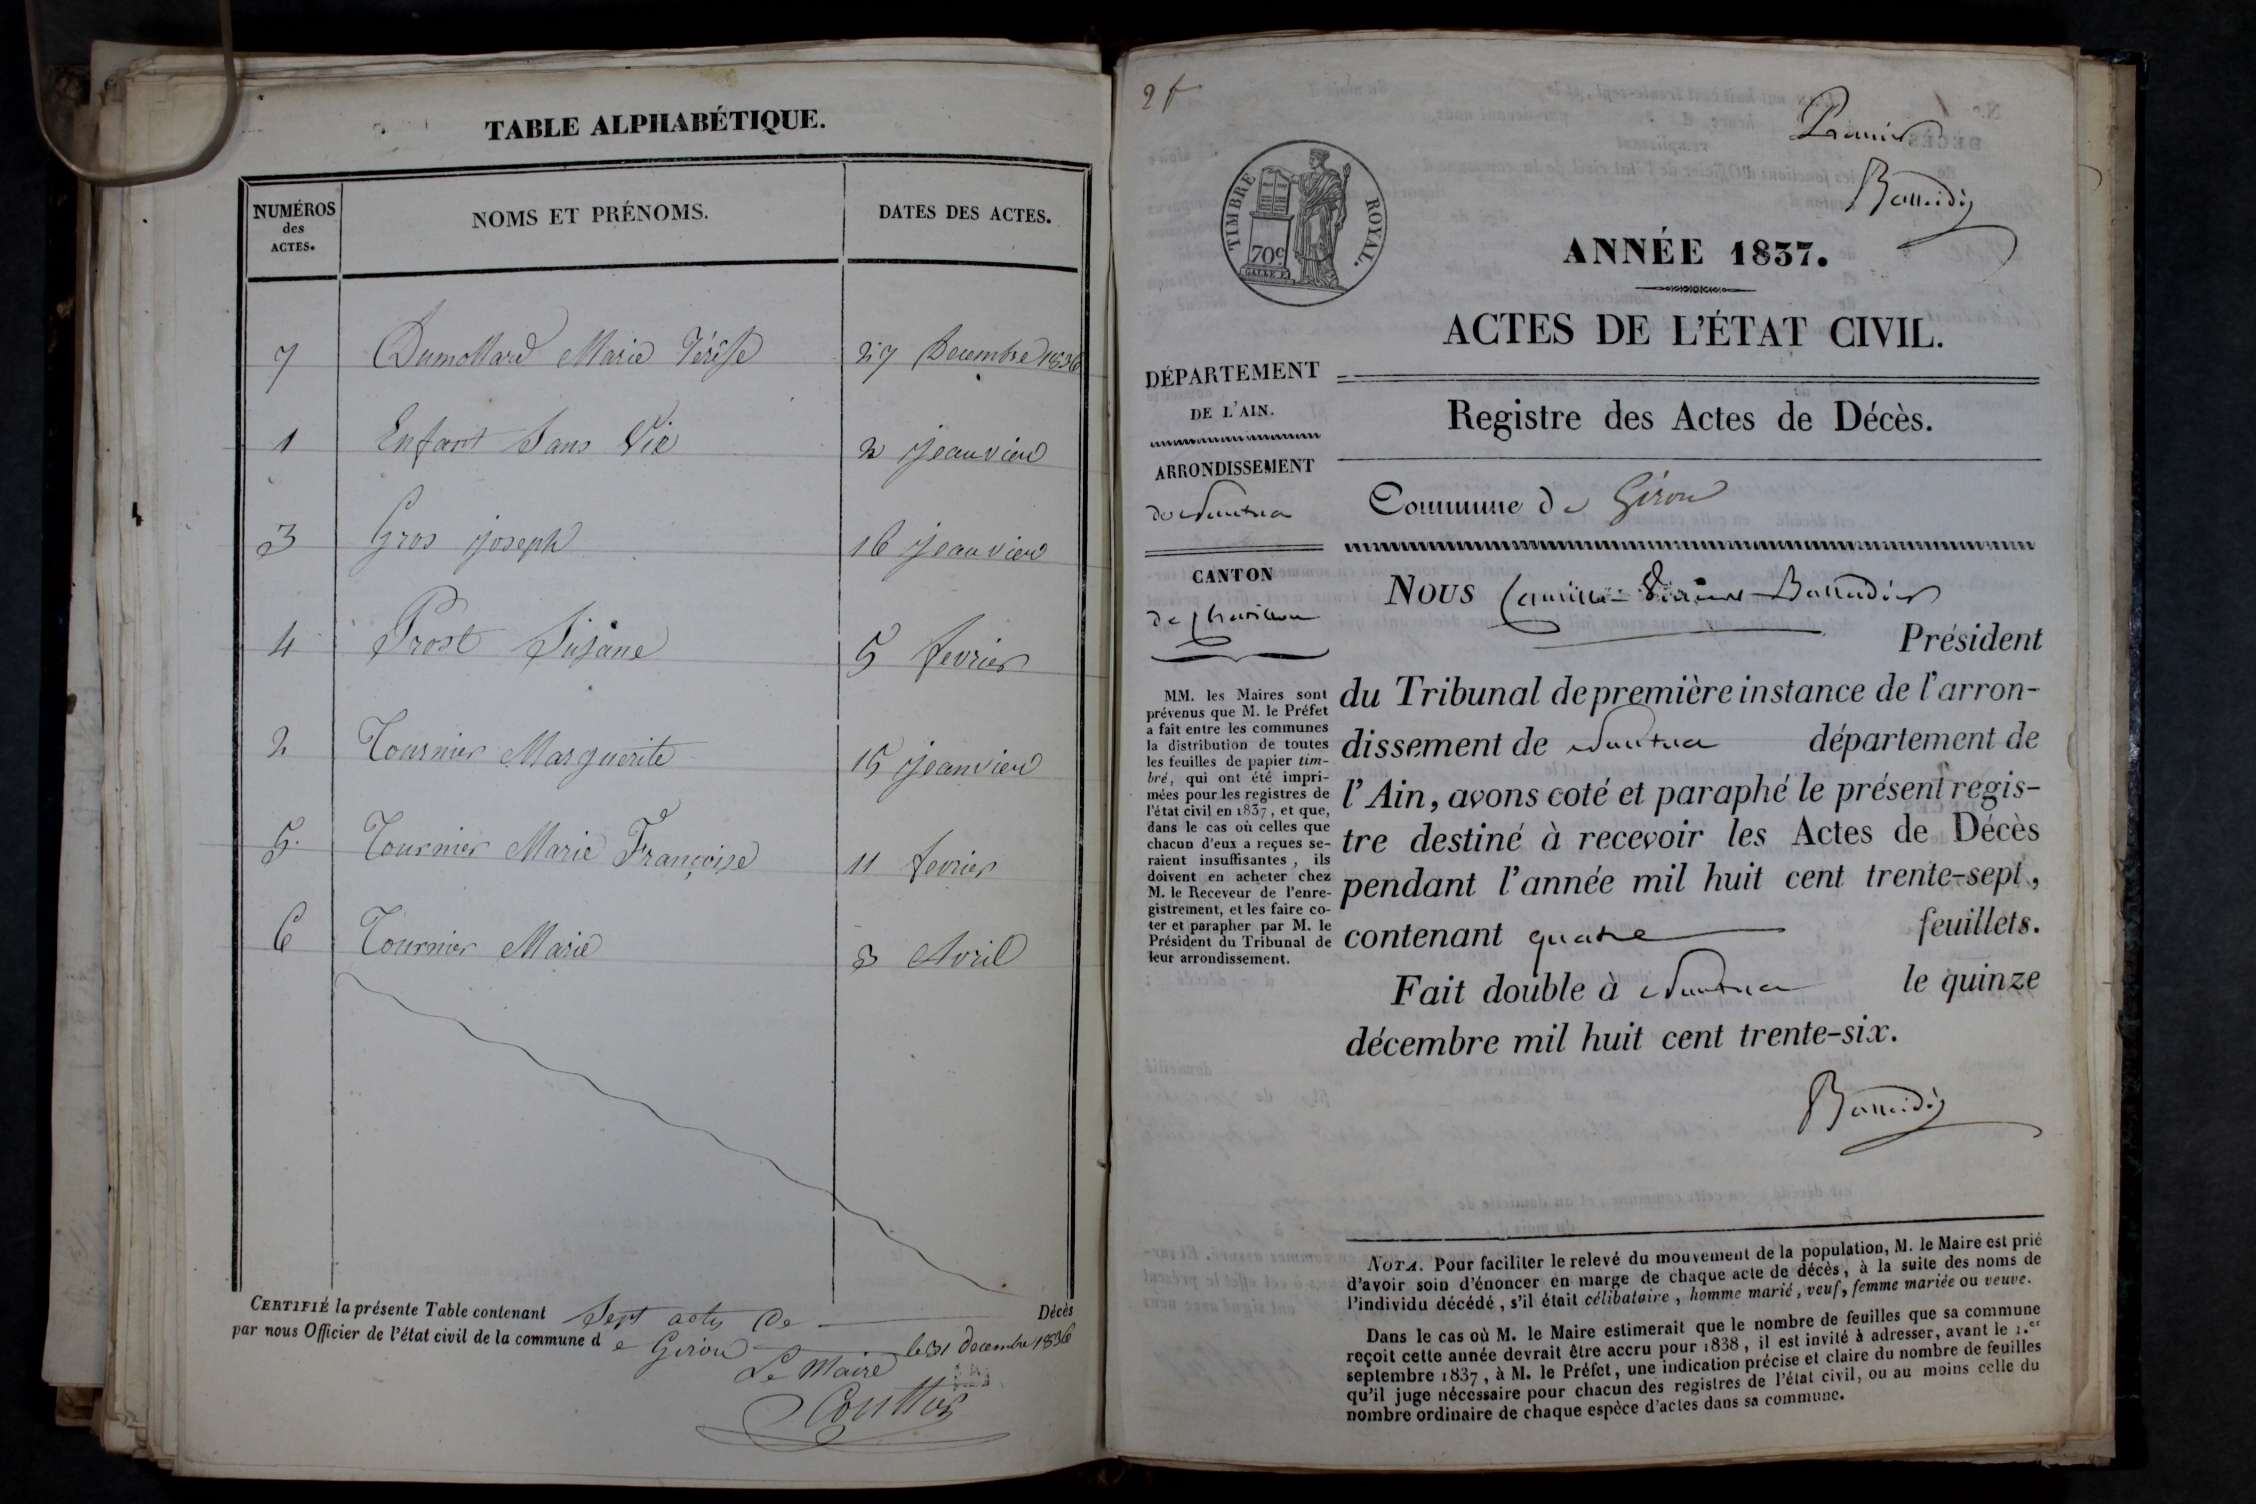 TABLE ALPHABÉTIQUE.
NUMÉROS
des
ACTES.
NOMS ET PRÉNOMS.
DATES DES ACTES.
7 Dumollard Marie Térèse 27 Decembre 1836
1 Enfant Sans Vie 2 jeanvier
3 Gros joseph 16 jeanvier
4 Prost Susane 5 fevrier
2 Tournier Marguerite 15 jeanvier
5. Tournier Marie Françoise 11 fevrier
6 Tournier Marie 3 Avril
CERTIFIÉ la présente Table contenant Sept actes de Décès
par nous Officier de l'état civil de la commune de Giron le 31 decembre 1836
Le Maire
2 f
Premier
TIMBRE ROYAL.
70c
ANNÉE 1837.
ACTES DE L'ÉTAT CIVIL.
DÉPARTEMENT
DE L'AIN.
ARRONDISSEMENT
de Nantua
CANTON
de Chatillon
MM. les Maires sont
prévenus que M. le Préfet
a fait entre les communes
la distribution de toutes
les feuilles de papier tim-
bré, qui ont été impri-
mées pour les registres de
l'état civil en 1837, et que,
dans le cas où celles que
chacun d'eux a reçues se-
raient insuffisantes, ils
doivent en acheter chez
M. le Receveur de l'enre-
gistrement, et les faire co-
ter et parapher par M. le
Président du Tribunal de
leur arrondissement.
Registre des Actes de Décès.
Commune de Giron
Nous Camille
Président
du Tribunal de première instance de l'arron-
dissement de Nantua département de
l'Ain, avons coté et paraphé le présent regis-
tre destiné à recevoir les Actes de Décès
pendant l'année mil huit cent trente-sept,
contenant quatre feuillets.
Fait double à Nantua le quinze
décembre mil huit cent trente-six.
NOTA. Pour faciliter le relevé du mouvement de la population, M. le Maire est prié
d'avoir soin d'énoncer en marge de chaque acte de décès, à la suite des noms de
l'individu décédé, s'il était célibataire, homme marié, veuf, femme mariée ou veuve.
Dans le cas où M. le Maire estimerait que le nombre de feuilles que sa commune
reçoit cette année devrait être accru pour 1838, il est invité à adresser, avant le 1.er
septembre 1837, à M. le Préfet, une indication précise et claire du nombre de feuilles
qu'il juge nécessaire pour chacun des registres de l'état civil, ou au moins celle du
nombre ordinaire de chaque espèce d'actes dans sa commune.